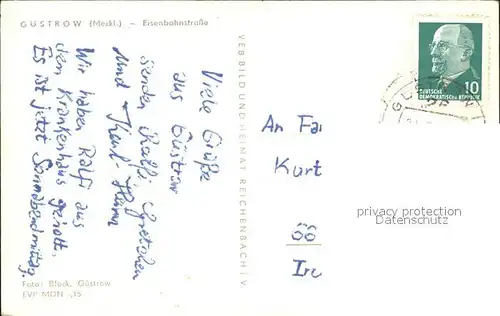 GÜSTROW (Meckl.) – Eisenbahnstraße
Viele Grüße
aus Güstrow
senden Ralfi, Gretchen
und Karl Heinz
Wir haben Ralfi aus
dem Krankenhaus geholt.
Es ist jetzt Sonnabendmittag.
Foto: Block, Güstrow
EVP MDN -,15
VEB BILD UND HEIMAT REICHENBACH I. V.
10
DEUTSCHE
DEMOKRATISCHE REPUBLIK
An Fa
Kurt
66
privacy protection
Datenschutz